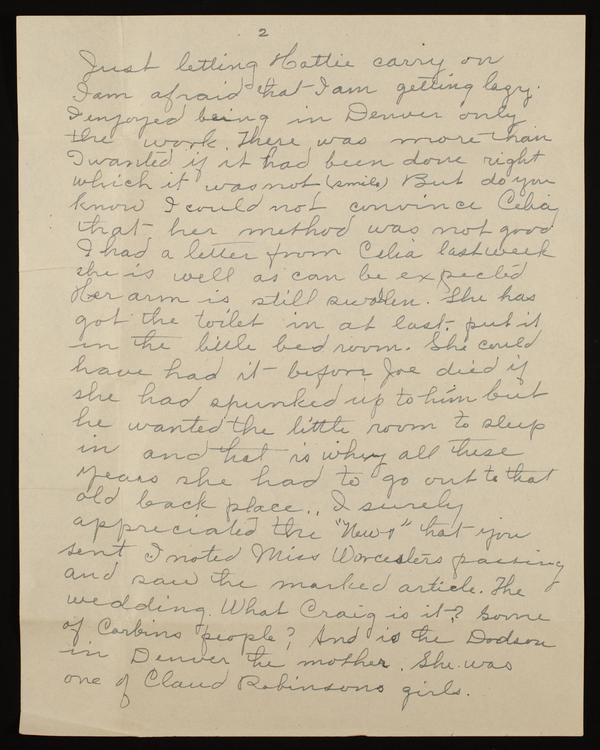 2
Just letting Hattie carry on
I am afraid that I am getting lazy.
I enjoyed being in Denver only
the work. There was more than
I wanted if it had been done right
which it was not (smile) But do you
know I could not convince Celia
that her method was not good
I had a letter from Celia last week
she is well as can be expected
Her arm is still swolen. She has
got the toilet in at last. put it
in the little bed room. She could
have had it before Joe died if
she had spunked up to him but
he wanted the little room to sleep
in and that is why all these
years she had to go out to that
old back place.. I surely
appreciated the "News" that you
sent I noted Miss Worcesters passing
and saw the marked article. The
wedding. What Craig is it? Some
of Corbins people? And is the Dodson
in Denver the mother. She was
one of Claud Robinsons girls.